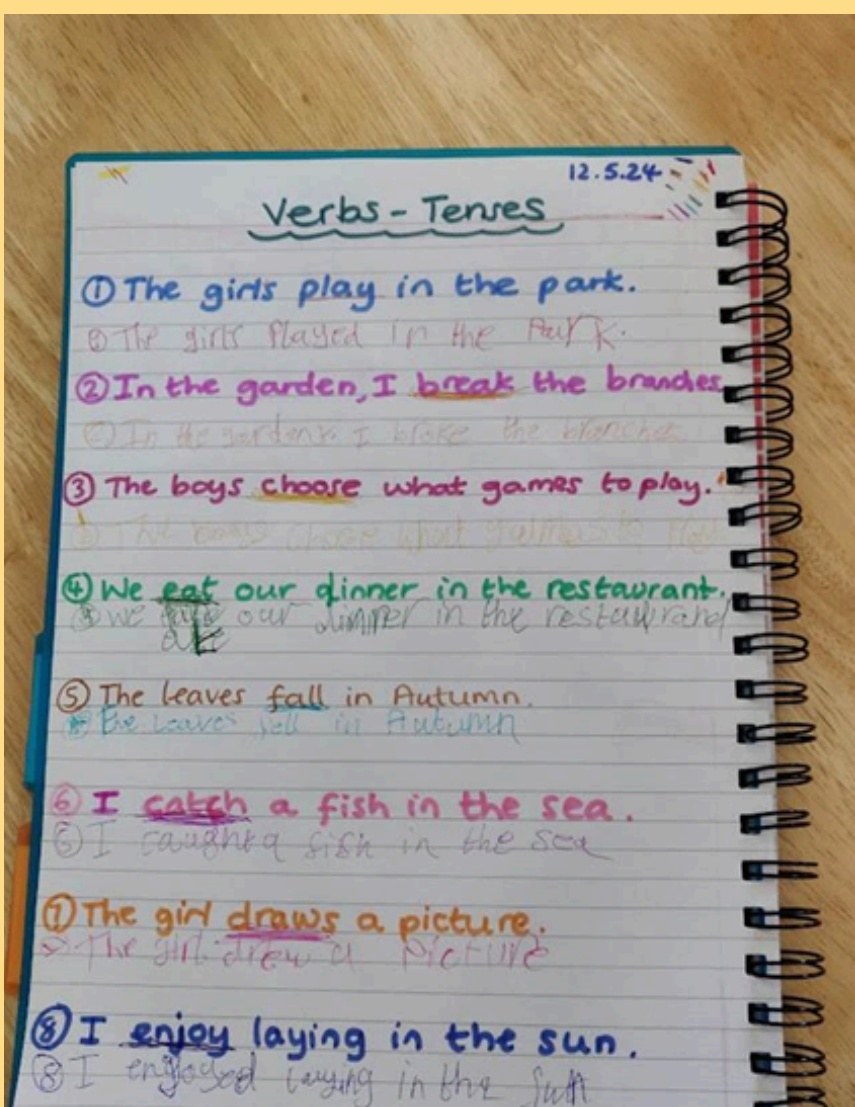 12.5.24
Verbs - Tenses
① The girls play in the park.
① The girls Played in the Park.
② In the garden, I break the branches
② In the garden I broke the branches
③ The boys choose what games to play.
③ The boys what to Play
④ We eat our dinner in the restaurant.
④ We our dinner in the restaurand
ate
⑤ The leaves fall in Autumn.
the Leaves fell in Autumn
⑥ I catch a fish in the sea.
⑥ I caught a fish in the sea
⑦ The girl draws a picture.
The girl drew a Picture
⑧ I enjoy laying in the sun.
⑧ I engoyed laying in the sun